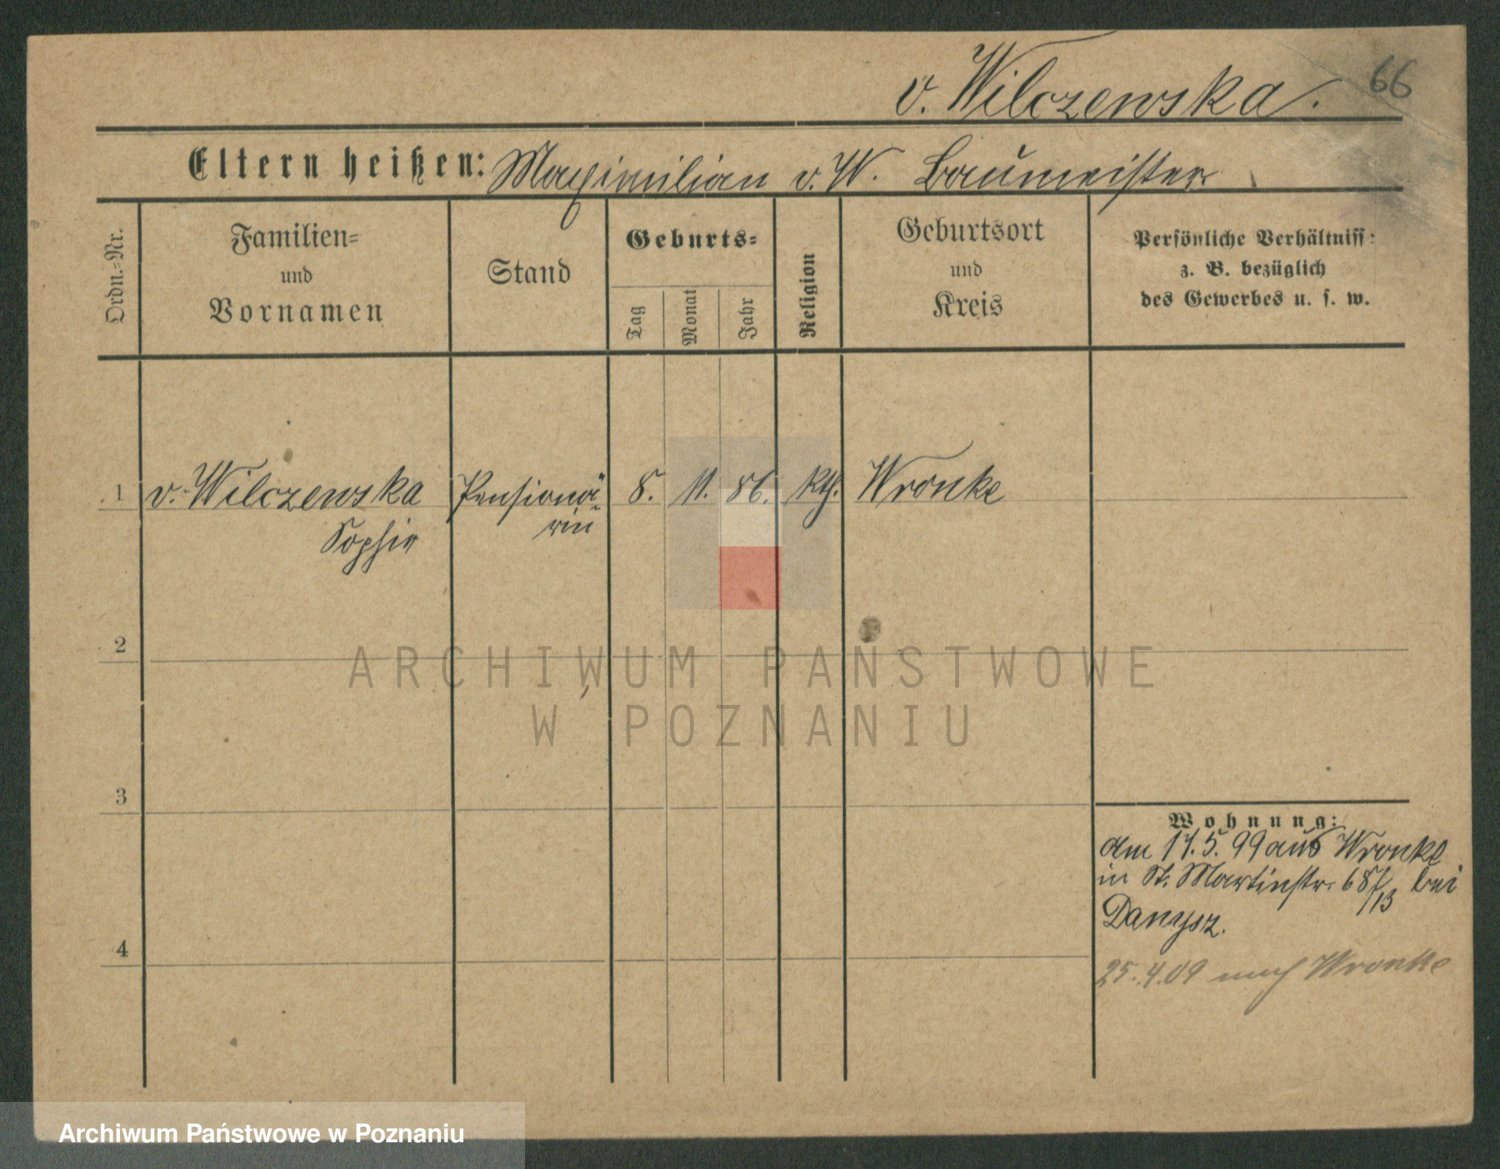 66
v. Wilczewska.
Eltern heißen: Maximilian v. W. Baumeister
Ordn.-Nr.
Familien-
und
Vornamen
Stand
Geburts-
Tag
Monat
Jahr
Religion
Geburtsort
und
Kreis
Persönliche Verhältniss:
z. B. bezüglich
des Gewerbes u. s. w.
1 v. Wilczewska Pensionä- 8. 11. 86. kth. Wronke
Sophie rin
2
ARCHIWUM PAŃSTWOWE
W POZNANIU
3
Wohnung:
am 17.5.99 aus Wronke
in St. Martinstr. 68/13 bei
Danysz.
4
25.4.09 nach Wronke
Archiwum Państwowe w Poznaniu